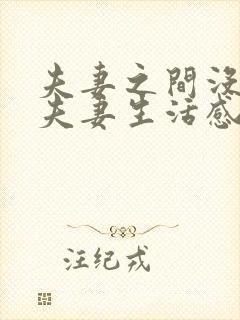 夫妻之間沒
夫妻生活感
汪纪戎